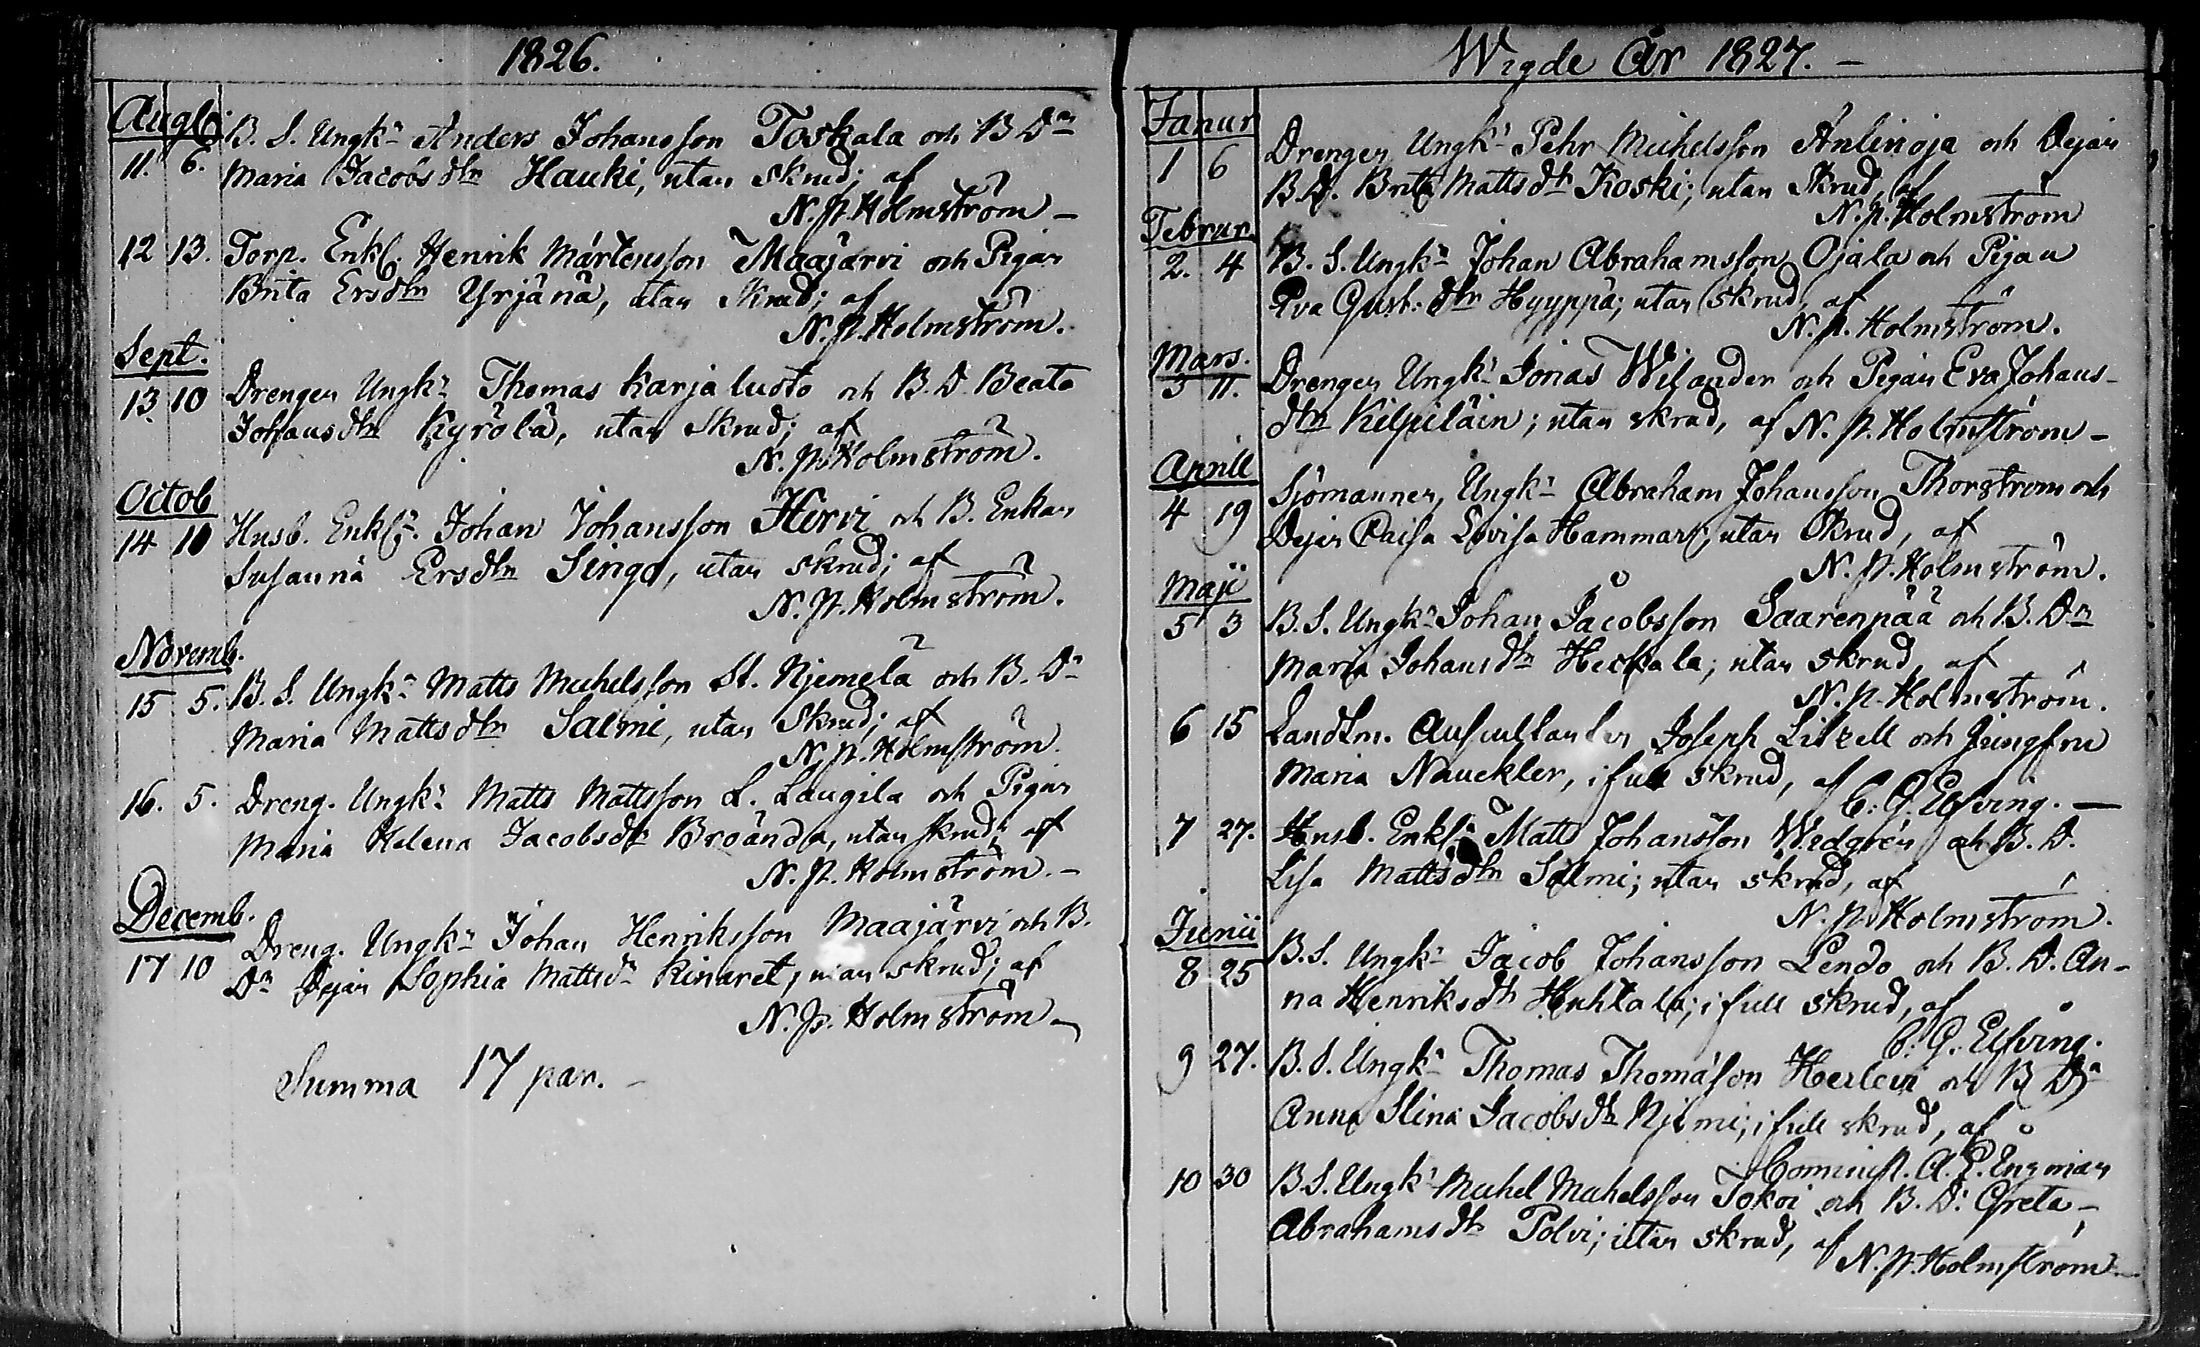 1826.
Augti
11. 6. B. S. Ungk:n Anders Johansson Toskala och B Dn
Maria Jacobsdtr Hauki, utan skrud; af
N. P. Holmström –
12 13. Torp. Enkl. Henrik Mårtensson Maajärvi och Pigan
Brita Ersdtr Yrjänä, utan skrud; af
N. P. Holmström.
Sept.
13. 10 Drengen Ungk:n Thomas Karjaluoto och B. D. Beata
Johansdtr Kyrölä, utan skrud; af
N. P. Holmström.
Octob
14 10 Husb. Enkl:n Johan Johansson Hervi och B. Enkan
Susanna Ersdtr Singo, utan skrud; af
N. P. Holmström.
Novemb.
15 5. B. S. Ungk:n Matts Michelsson St. Njemelä och B. Dn
Maria Mattsdtr Salmi, utan skrud; af
N. P. Holmström.
16. 5. Dreng. Ungk:n Matts Mattsson L. Laugila och Pigan
Maria Helena Jacobsdtr Broända, utan skrud; af
N. P. Holmström. –
Decemb.
17 10 Dreng. Ungk:n Johan Henriksson Maajärvi och B.
Dn Dejan Sophia Mattsdr Kinaret, utan skrud; af
N. P. Holmström –
Summa 17 par. –
Wigde År 1827. –
Janur
1 6 Drengen Ungk:n Pehr Michelsson Änlinoja och Dejan
B. D. Brita Mattsdtr Koski; utan skrud, af
N. P. Holmström
Februr.
2. 4 B. S. Ungk:n Johan Abrahamsson Ojala och Pigan
Eva Gust:dtr Hyyppä; utan skrud, af
N. P. Holmström.
Mars.
3 11. Drengen Ungk:n Jonas Wilander och Pigan Eva Johans-
dtr Kilpiläin; utan skrud, af N. P. Holmström –
Aprill
4 19 Sjömannen, Ungk:n Abraham Johansson Thorström och
Dejan Caisa Lovisa Hammar, utan skrud, af
N. P. Holmström.
Maji
5 3 B. S. Ungk:n Johan Jacobsson Saarenpää och B. Dn
Maria Johansdtr Heikala; utan skrud, af
N. P. Holmström.
6 15 Landtm. Auscultanten Joseph Litzell och Jungfru
Maria Nauckler, i full skrud, af
C. G. Elfving. –
7 27. Husb. Enkl:n Matts Johansson Wedgrén och B. D.
Lisa Mattsdtr Salmi; utan skrud, af
N. P. Holmström.
Junii
8 25 B. S. Ungk:n Jacob Johansson Lendo och B. D. An-
na Henriksdtr Huhtala; i full skrud, af
C. G. Elfving.
9 27. B. S. Ungk:n Thomas Thomasson Herlevi och B Dn
Anna Stina Jacobsdtr Njemi; i full skrud, af
Cominist. A. G. Engman
10 30 B. S. Ungk:n Michel Michelsson Tokoi och B. D: Greta –
Abrahamsdtr Polvi; utan skrud, af N. P. Holmström –